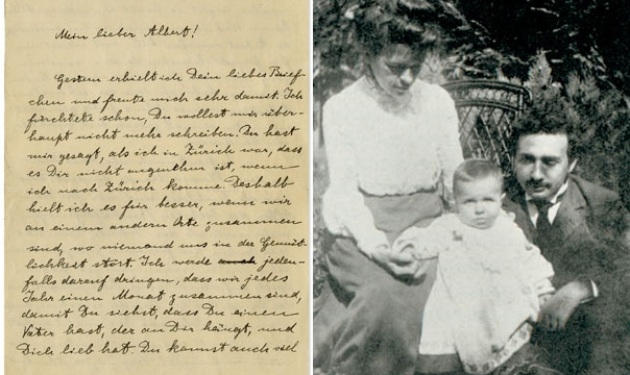 Mein lieber Albert!
Gestern erhielt ich Dein liebes Brief-
chen und freute mich sehr damit. Ich
fürchtete schon, Du wollest mir über-
haupt nicht mehr schreiben. Du hast
mir gesagt, als ich in Zürich war, dass
es Dir nicht angenehm ist, wenn
ich nach Zürich komme. Deshalb
hielt ich es für besser, wenn wir
an einem andern Orte zusammen
sind, wo niemand uns in der Gemüt-
lichkeit stört. Ich werde jeden-
falls darauf dringen, dass wir jedes
Jahr einen Monat zusammen sind,
damit Du siehst, dass Du einen
Vater hast, der an Dir hängt, und
Dich lieb hat. Du kannst auch viel